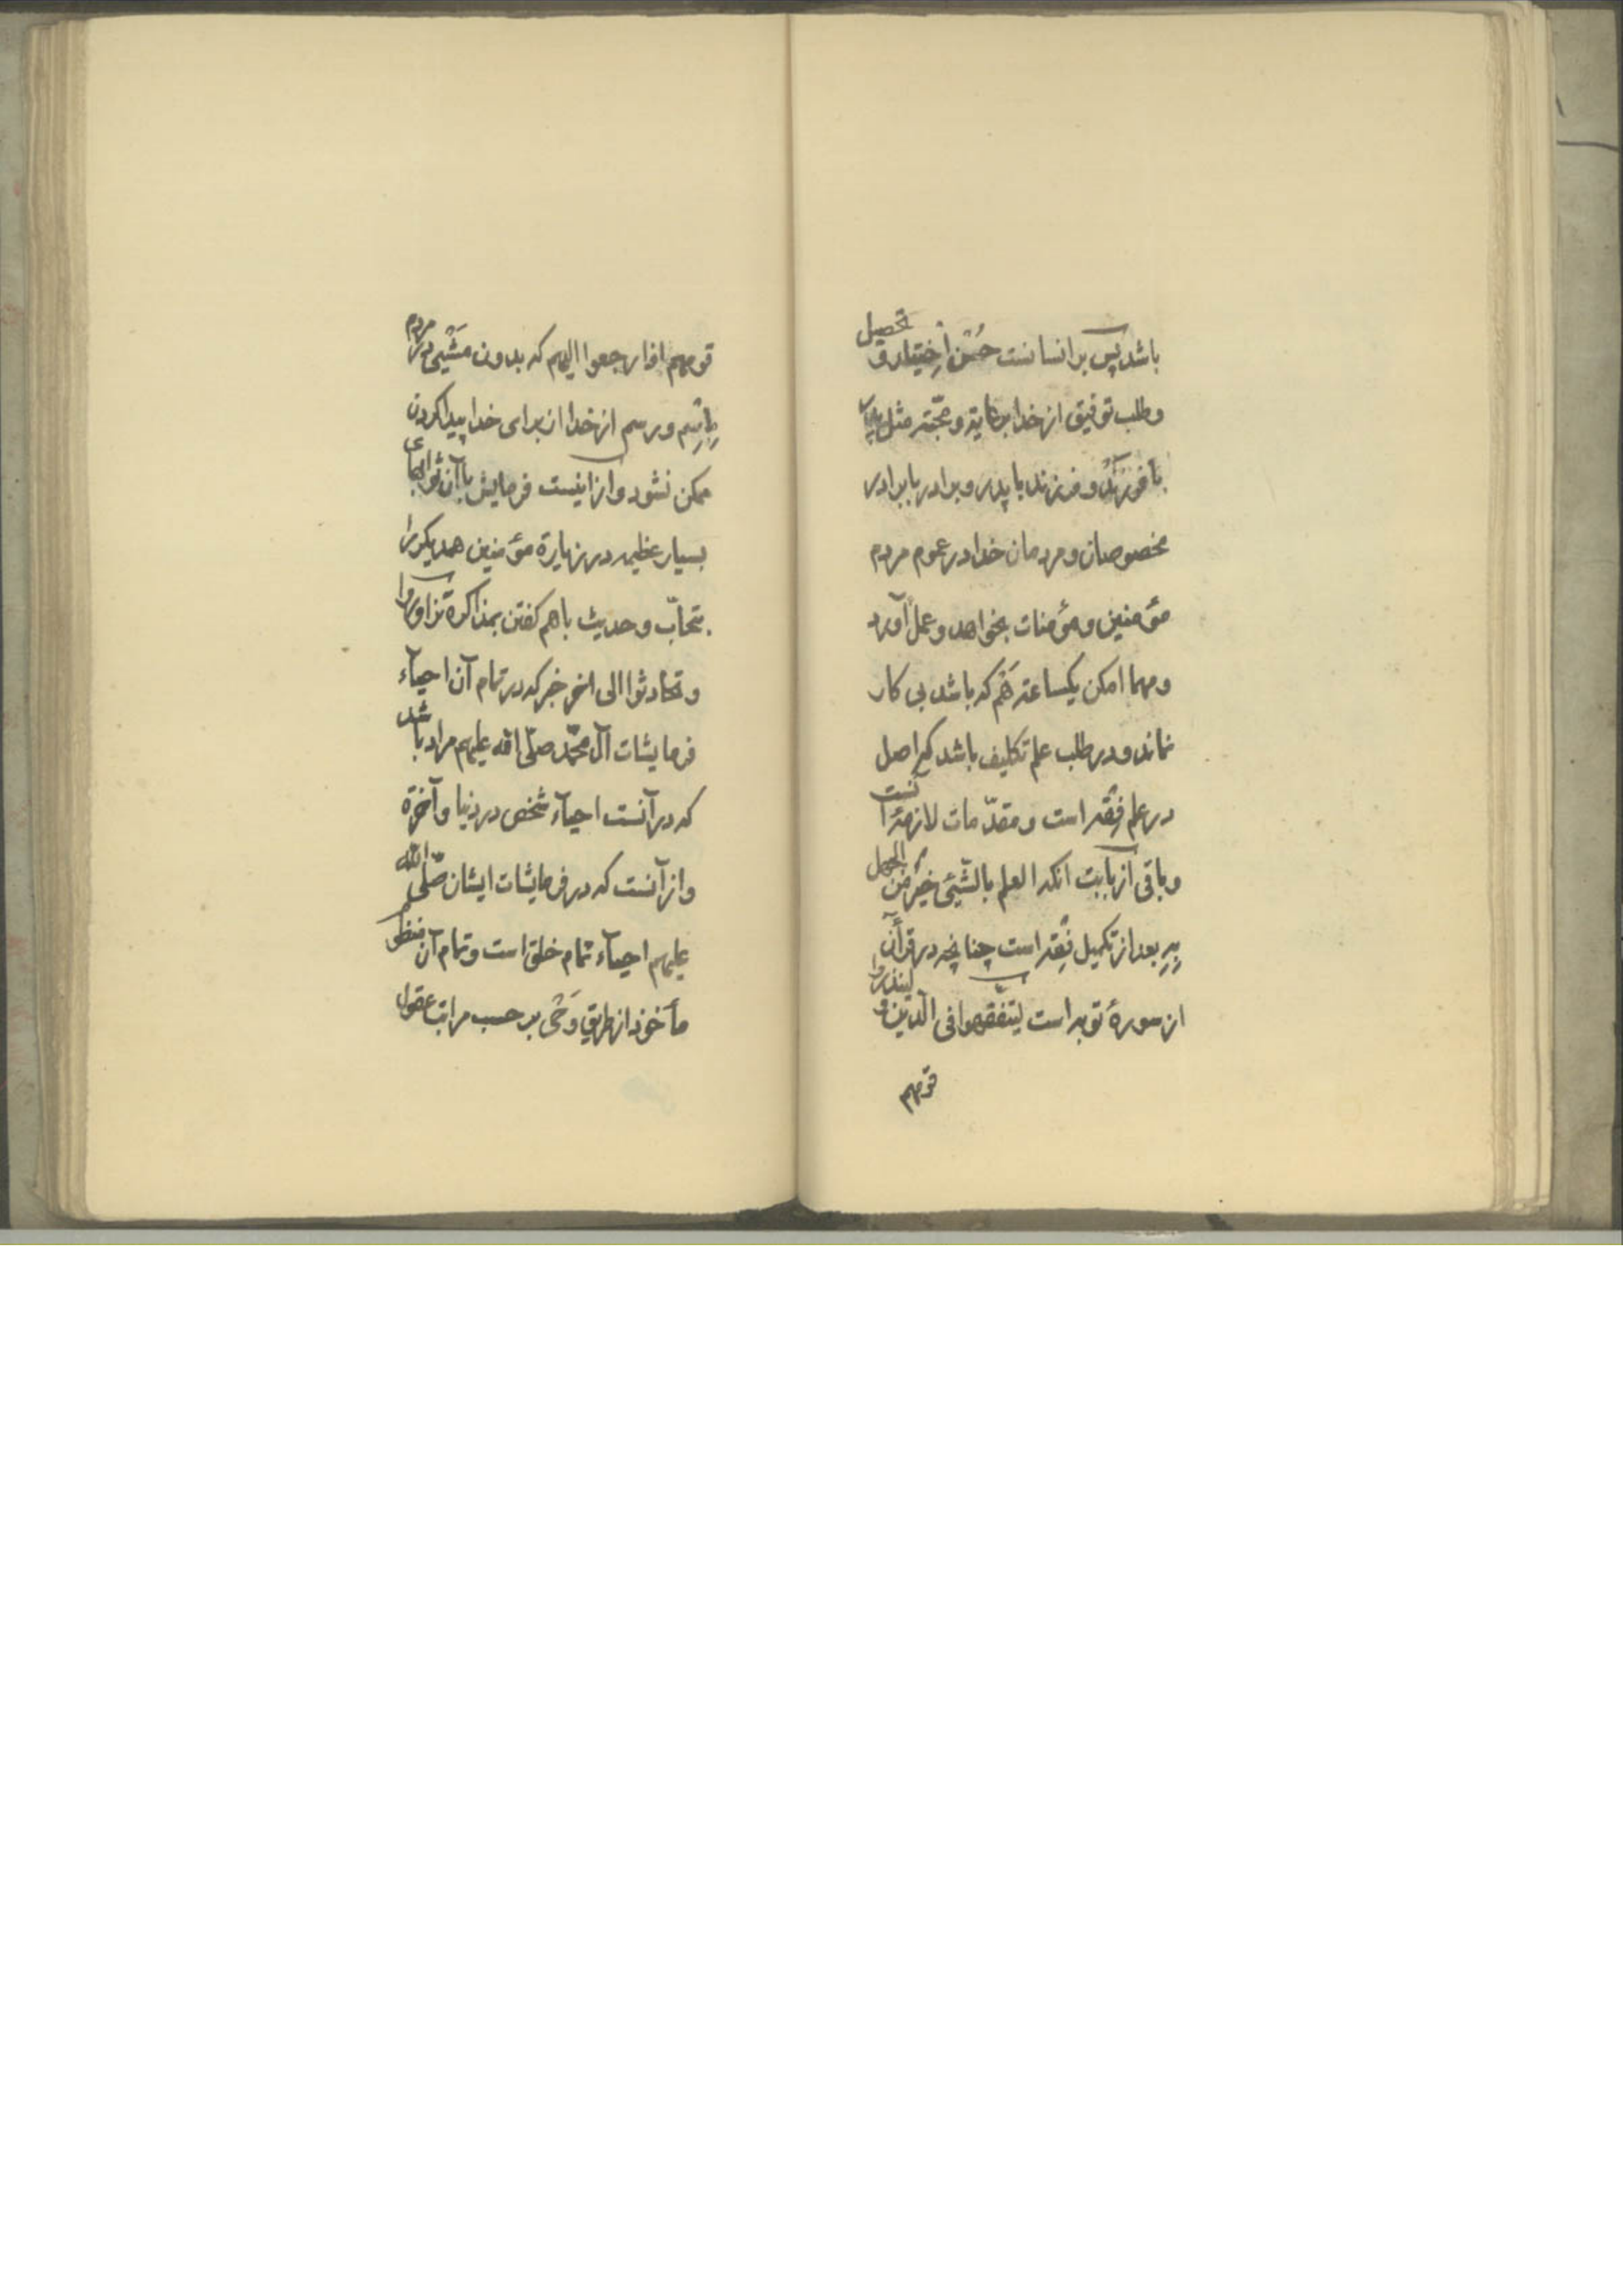 باشد پس بر انسانست حُسْن اِختیار و تحصیل
و طلب توفیق از خدا برعایة و محبّة مثل پدر
با فرزند و فرزند با پدر و برادر با برادر
مخصوصان و مردمان خدا در عموم مردم
مؤمنین و مؤمنات بخواهد و عمل آورد
و مهما امکن یکساعته هَم که باشد بی کار
نماند و در طلب علم تکلیف باشد که اصل
در علم فِقْه است و مقدّمات لازمهٔ آنست
و باقی از بابت انکه العلم بالشّیئ خیرٌ من الجهل
بِهِ بعد از تکمیل فِقْه است چنانچه در قرآن
از سورهٔ توبه است لیتفقهوا فی الّدین و لینذروا
قومهم
قومهم اذا رجعوا الیهم که بدون مَشْیِ در مردم
باِسْمِ و رسم از خدا از برای خدا پیدا کردن
ممکن نشود و از اینست فرمایش با آن ثوابهای
بسیار عظیمه در زیارة مؤمنین همدیگر را
بتحابّ و حدیث باهم کفتن بمذاکرة تزاوروا
و تحادثوا الی اخر خبر که در تمام آن احیآء
فرمایشات آل محمّد صلّی الله علیهم مراد باشد
که در آنست احیآء شخص در دنیا و آخرة
و از آنست که در فرمایشات ایشان صلّی الله
علیهم احیآء تمام خلق است و تمام آن منظر
مأخوذ از طریق وَحْی بر حسب مراتب عقول